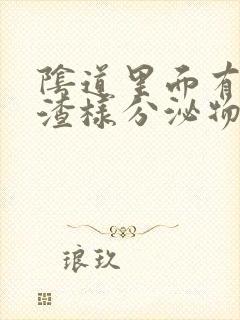 陰道里而有
渣樣分泌物
琅玖